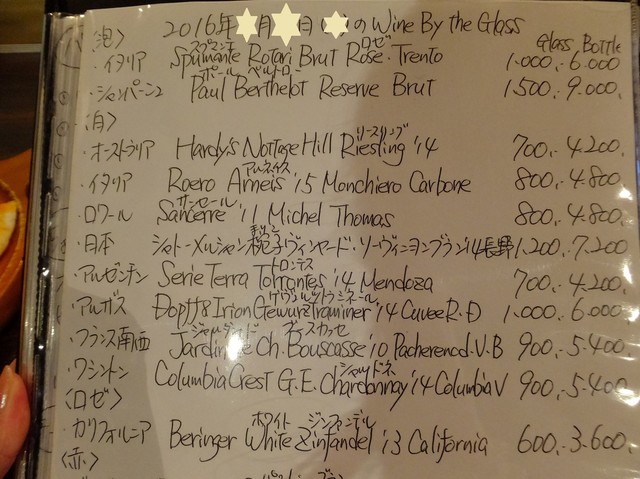 2016年 月 日( )のWine By the Glass
Glass Bottle
〈泡〉
スプマンテ ロゼ
・イタリア Spumante Rotari Brut Rose. Trento 1.000.-6.000
ポール ベルトロー
・シャンパーニュ Paul Berthelot Reserve Brut 1.500.-9.000.
〈白〉
リースリング
・オーストラリア Hardy's Nottage Hill Riesling '14 700.-4.200.
アルネイス
・イタリア Roero Arneis '15 Monchiero Carbone 800.-4.800.
サンセール
・ロワール Sancerre '11 Michel Thomas 800.-4.800
・日本 シャトー・メルシャン椀子ヴィンヤード・ソーヴィニヨンブラン'14長野 1.200.-7.200
トロンテス
・アルゼンチン Serie Terra Torrontes '14 Mendoza 700.-4.200.
ゲヴュルツトラミネール
・アルザス Dopff & Irion Gewurztraminer '14 Cuvee R.D 1.000.-6.000
ジャルダン ド ブースカッセ
・フランス南西 Jardin de Ch. Bouscasse '10 Pacherenc d. V. B 900.-5.400.
シャルドネ
・ワシントン Columbia Crest G.E. Chardonnay '14 Columbia V 900.-5.400
〈ロゼ〉
ホワイト ジンファンデル
・カリフォルニア Beringer White Zinfandel '13 California 600.-3.600.
〈赤〉